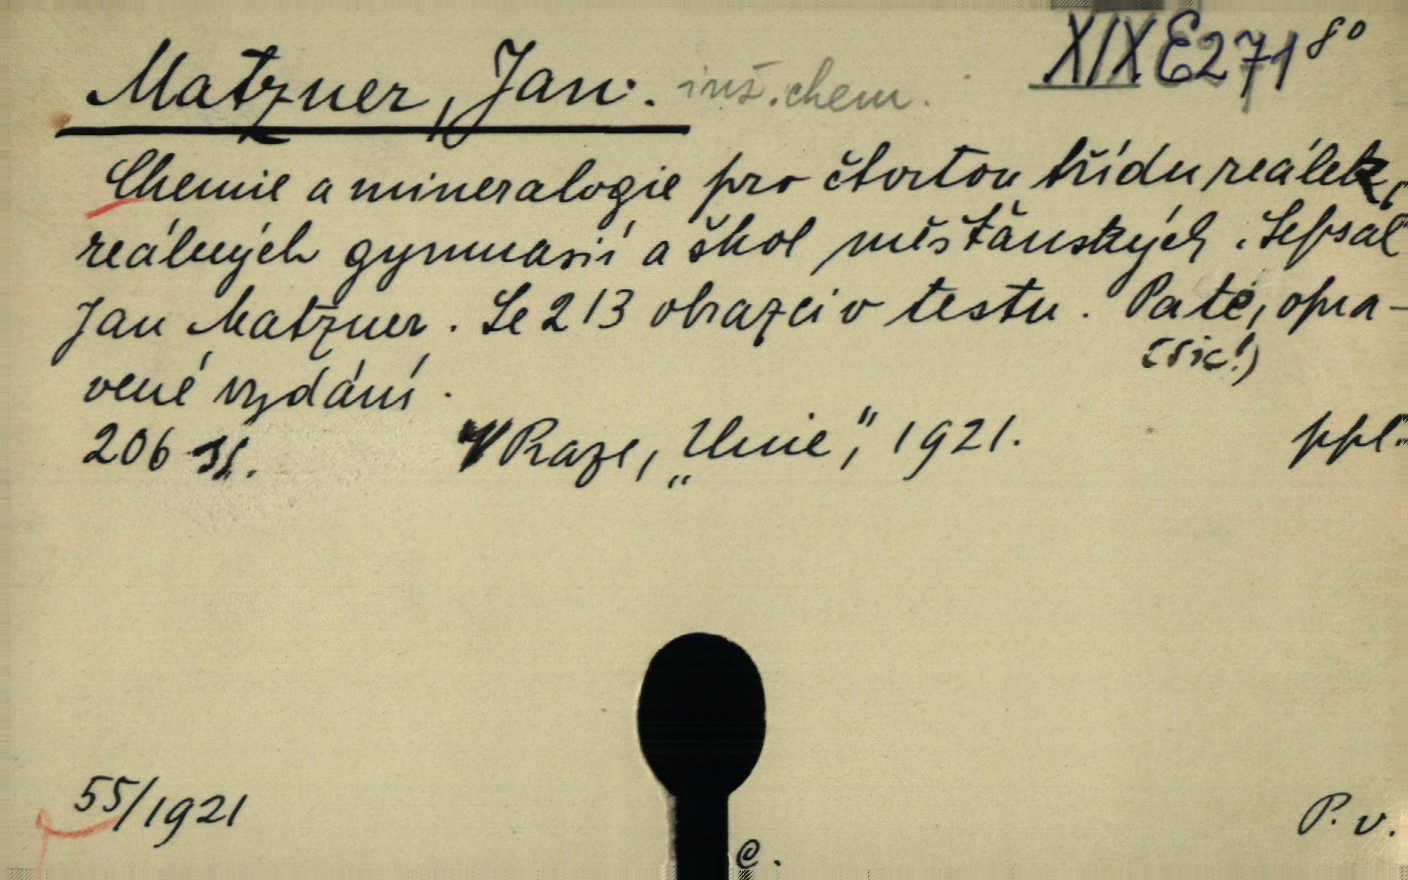 XIX E 271 8°
Matzner, Jan. inž. chem.
Chemie a mineralogie pro čtvrtou třídu reálek,
reálných gymnasií a škol měšťanských. Sepsal
Jan Matzner. Se 213 obrazci v testu. Paté, opra-
(sic!)
vené vydání.
206 str. V Praze, „Unie”, 1921. ppl.
55/1921
P. v.
e.